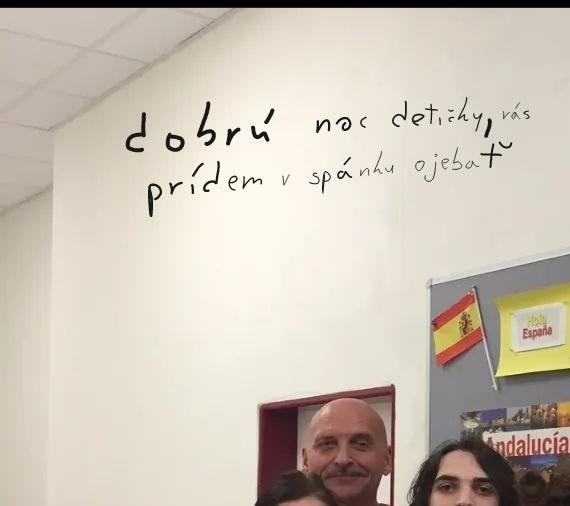 dobrú noc detičky, vás
prídem v spánku ojebať
Hola
España
Andalucía